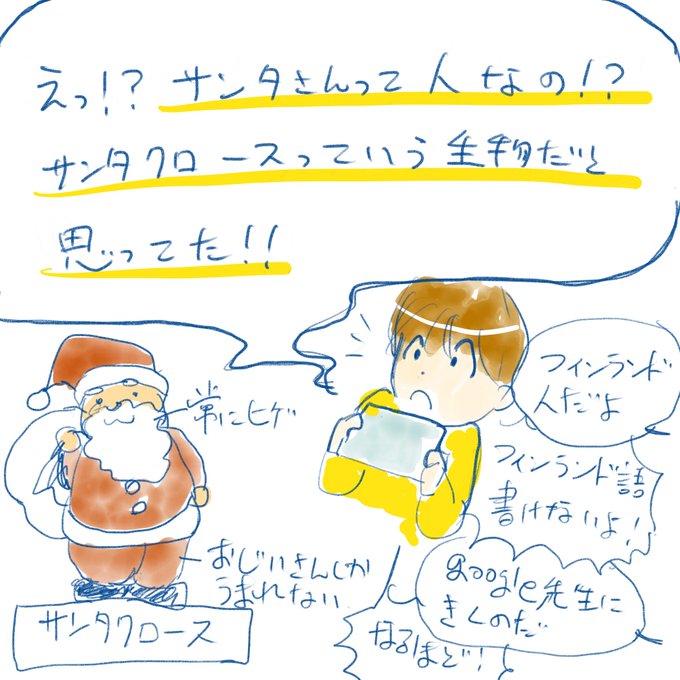 えっ!? サンタさんって人なの!?
サンタクロースっていう生物だと
思ってた!!
常にヒゲ
おじいさんしか
うまれない
サンタクロース
フィンランド
人だよ
フィンランド語
書けないよ!
google先生に
きくのだ
なるほど!